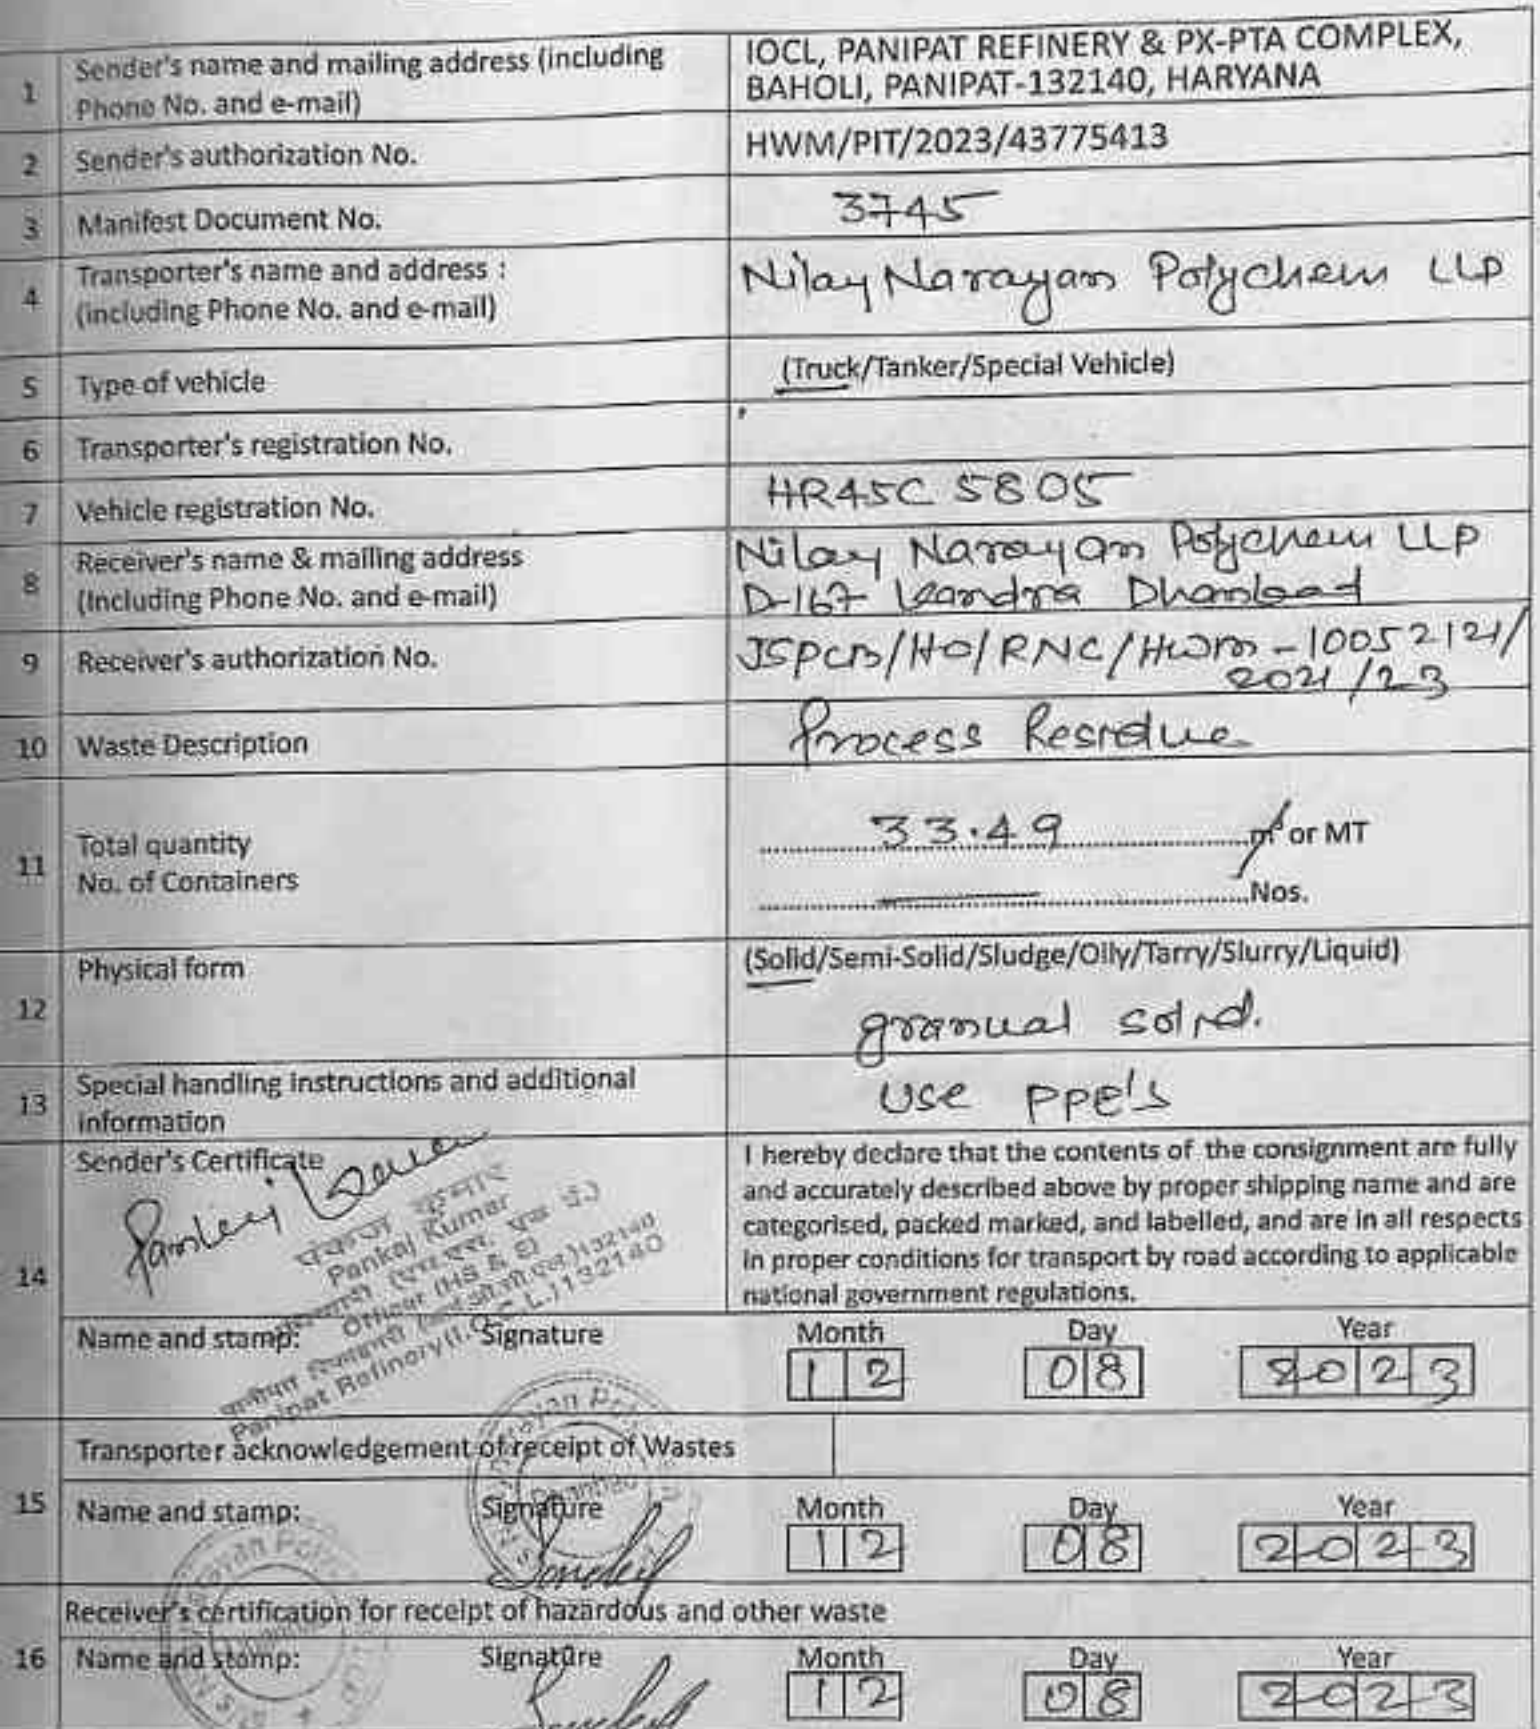 1 Sender's name and mailing address (including Phone No. and e-mail)
IOCL, PANIPAT REFINERY & PX-PTA COMPLEX,
BAHOLI, PANIPAT-132140, HARYANA
2 Sender's authorization No.
HWM/PIT/2023/43775413
3 Manifest Document No.
3745
4 Transporter's name and address :
(including Phone No. and e-mail)
Nilay Narayan Polychem LLP
5 Type of vehicle
(Truck/Tanker/Special Vehicle)
6 Transporter's registration No.
7 Vehicle registration No.
HR45C 5805
8 Receiver's name & mailing address
(Including Phone No. and e-mail)
Nilay Narayan Polychem LLP
D-167 Kandra Dhanbad
9 Receiver's authorization No.
JSPCB/HO/RNC/HWM-10052121/
2021/23
10 Waste Description
Process Residue
11 Total quantity
No. of Containers
33.49 m³ or MT
Nos.
12 Physical form
(Solid/Semi-Solid/Sludge/Oily/Tarry/Slurry/Liquid)
granual solid.
13 Special handling instructions and additional
information
Use PPE's
14 Sender's Certificate
Pankaj Kumar
I hereby declare that the contents of the consignment are fully
and accurately described above by proper shipping name and are
categorised, packed marked, and labelled, and are in all respects
in proper conditions for transport by road according to applicable
national government regulations.
पंकज कुमार
Pankaj Kumar
Officer (HS & E)
Panipat Refinery (I.O.C.L.) 132140
Name and stamp: Signature
Month Day Year
12 08 2023
Transporter acknowledgement of receipt of Wastes
15 Name and stamp: Signature
Month Day Year
12 08 2023
Receiver's certification for receipt of hazardous and other waste
16 Name and stamp: Signature
Month Day Year
12 08 2023